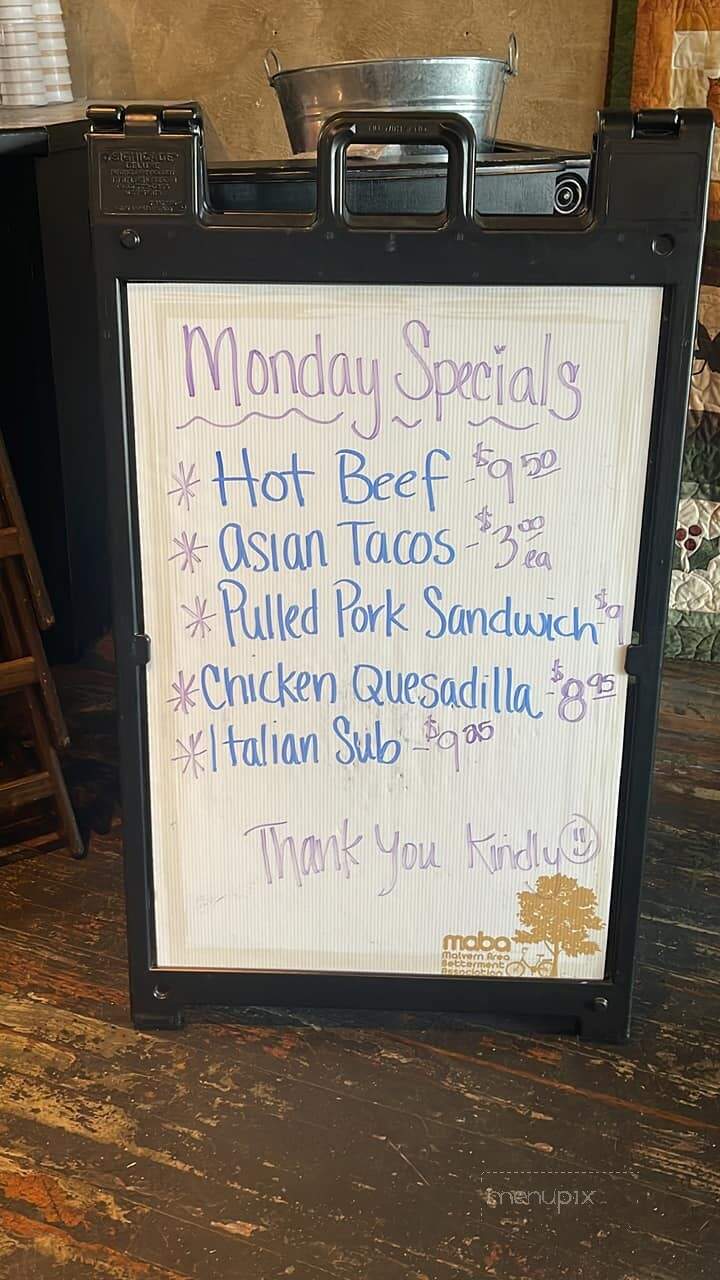 Monday Specials
* Hot Beef - $9 50
* Asian Tacos - $3 00 ea
* Pulled Pork Sandwich - $9
* Chicken Quesadilla - $8 95
* Italian Sub - $9 25
Thank You Kindly
maba
Malvern Area
Betterment
Association
menupix